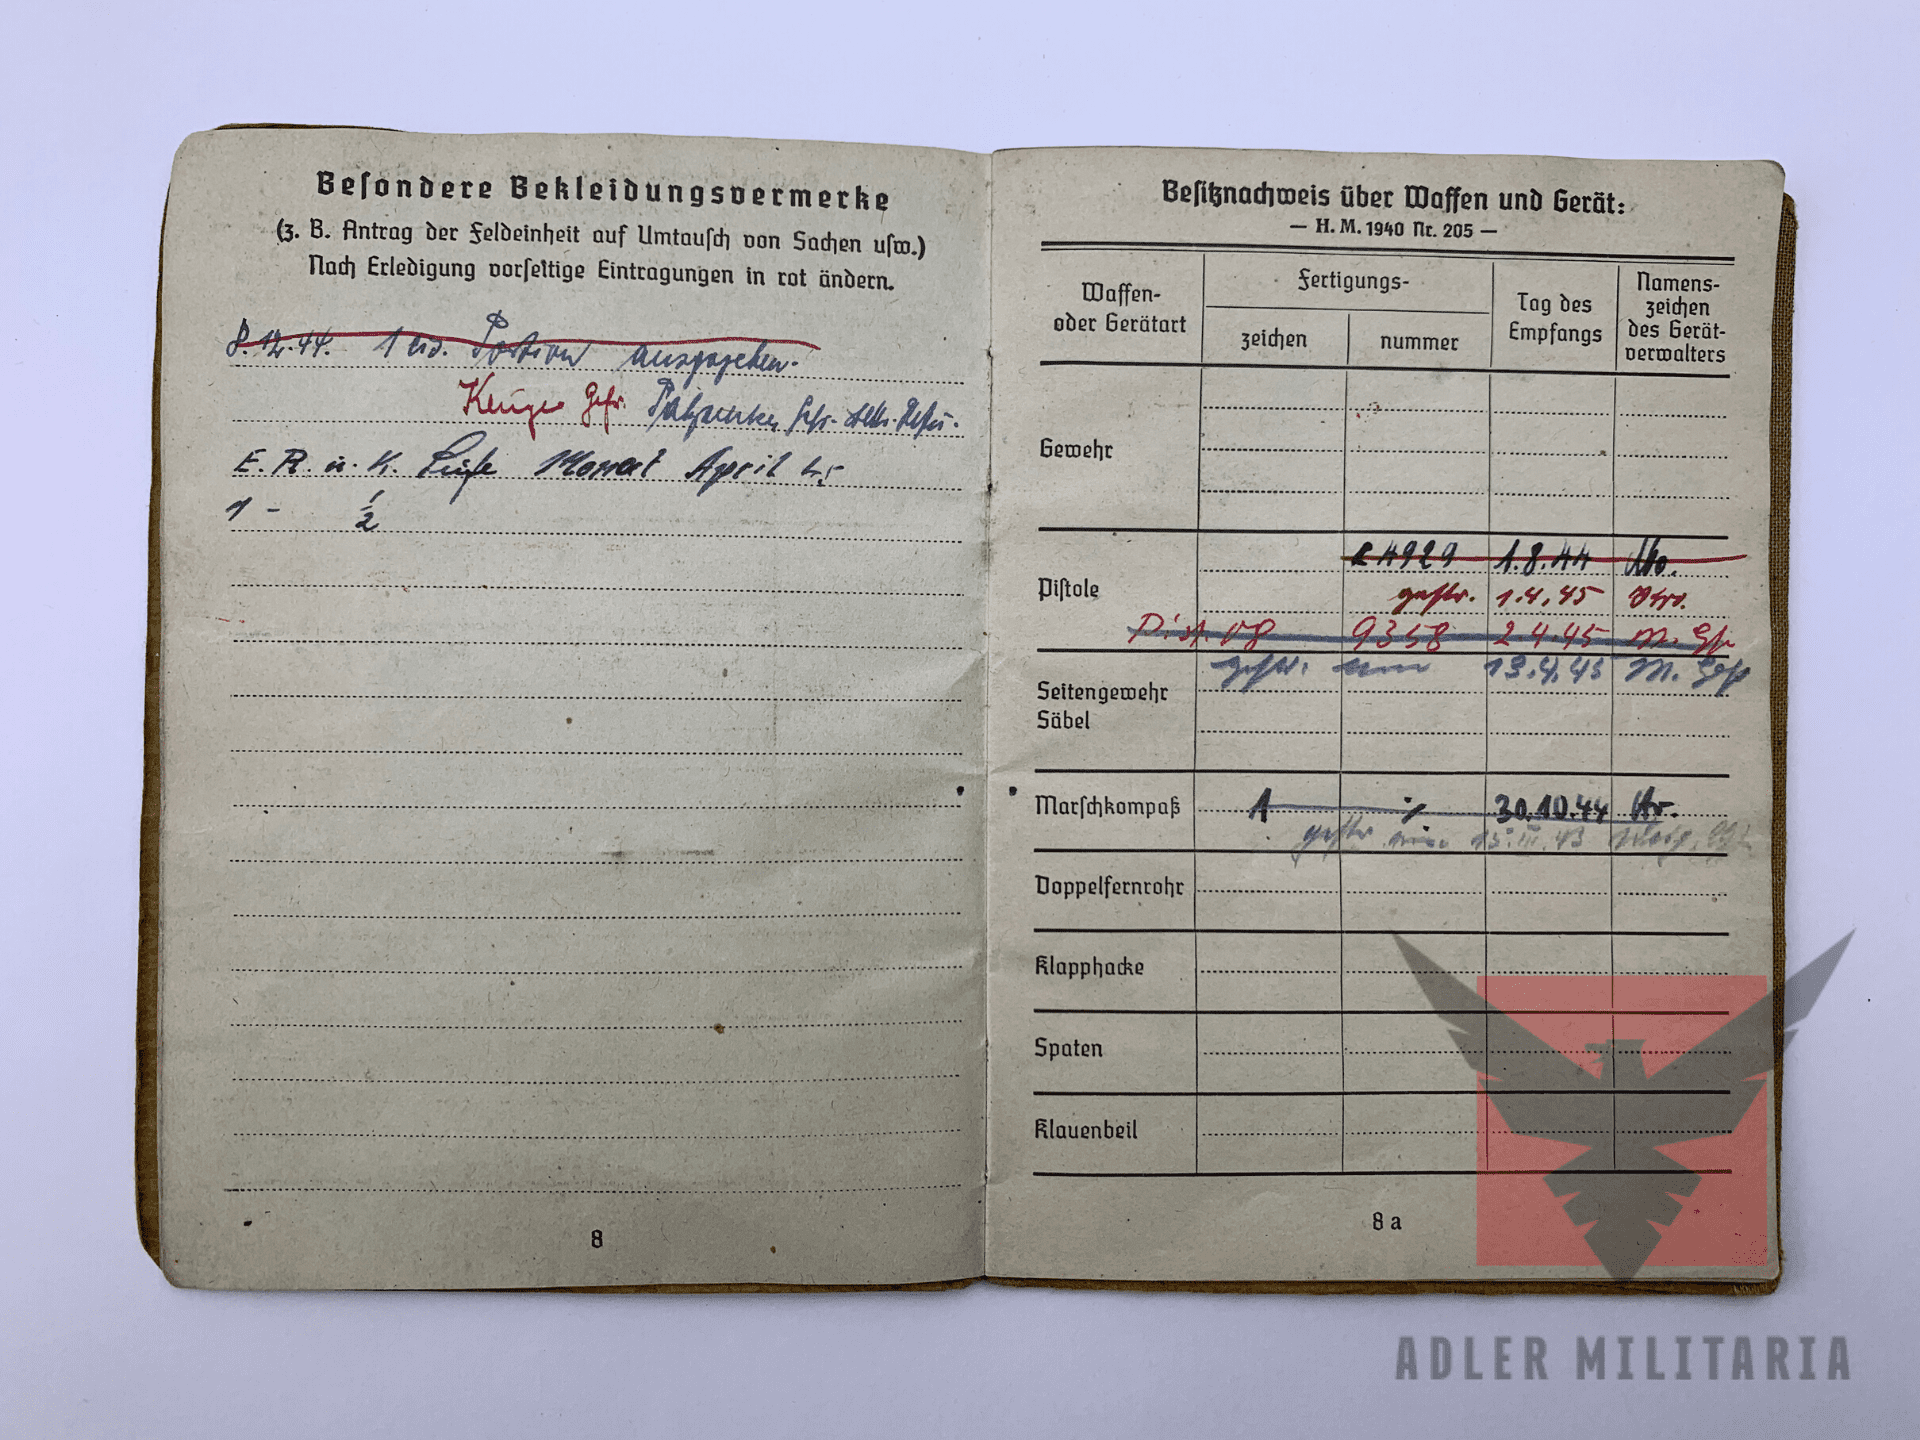 Besondere Bekleidungsvermerke
(z. B. Antrag der Feldeinheit auf Umtausch von Sachen usw.)
Nach Erledigung vorseitige Eintragungen in rot ändern.
8.12.44. 1 Portion ausgegeben.
Gefr.
E. R. u. K. Seife Monat April 45
1 - 1/2
8
Besitznachweis über Waffen und Gerät:
— H. M. 1940 Nr. 205 —
Waffen- oder Gerätart
Fertigungs-
zeichen
nummer
Tag des Empfangs
Namens-zeichen des Gerät-verwalters
Gewehr
Pistole
4929 1.8.44
gestr. 1.4.45
Pist. 08 9358 2.4.45 M. Gefr
gestr. 13.4.45 M. Gefr
Seitengewehr
Säbel
Marschkompaß 1 30.10.44
gestr.
Doppelfernrohr
Klapphacke
Spaten
Klauenbeil
8 a
ADLER MILITARIA